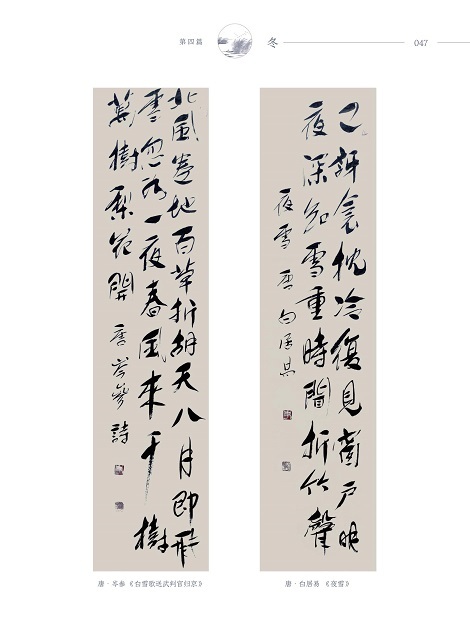 第四篇 冬 047
已訝衾枕冷復見窗戶明
夜深知雪重時聞折竹聲
夜雪 唐 白居易
北風卷地百草折胡天八月即飛
雪忽如一夜春風來千樹
萬樹梨花開 唐岑參詩
唐·岑参《白雪歌送武判官归京》
唐·白居易 《夜雪》